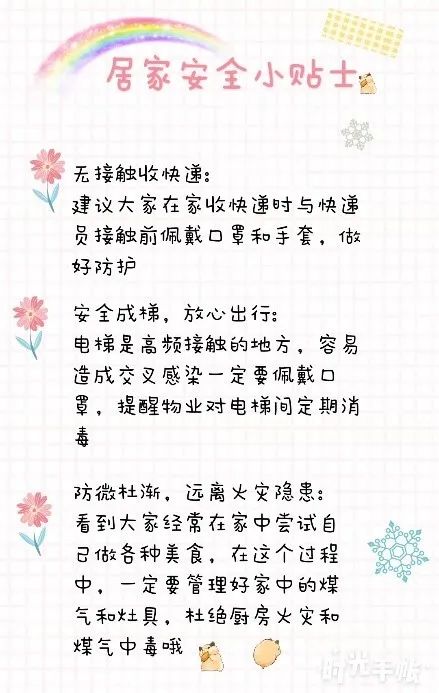 居家安全小贴士
无接触收快递:
建议大家在家收快递时与快递
员接触前佩戴口罩和手套，做
好防护
安全成梯，放心出行:
电梯是高频接触的地方，容易
造成交叉感染一定要佩戴口
罩，提醒物业对电梯间定期消
毒
防微杜渐，远离火灾隐患:
看到大家经常在家中尝试自
己做各种美食，在这个过程
中，一定要管理好家中的煤
气和灶具，杜绝厨房火灾和
煤气中毒哦
时光手帐